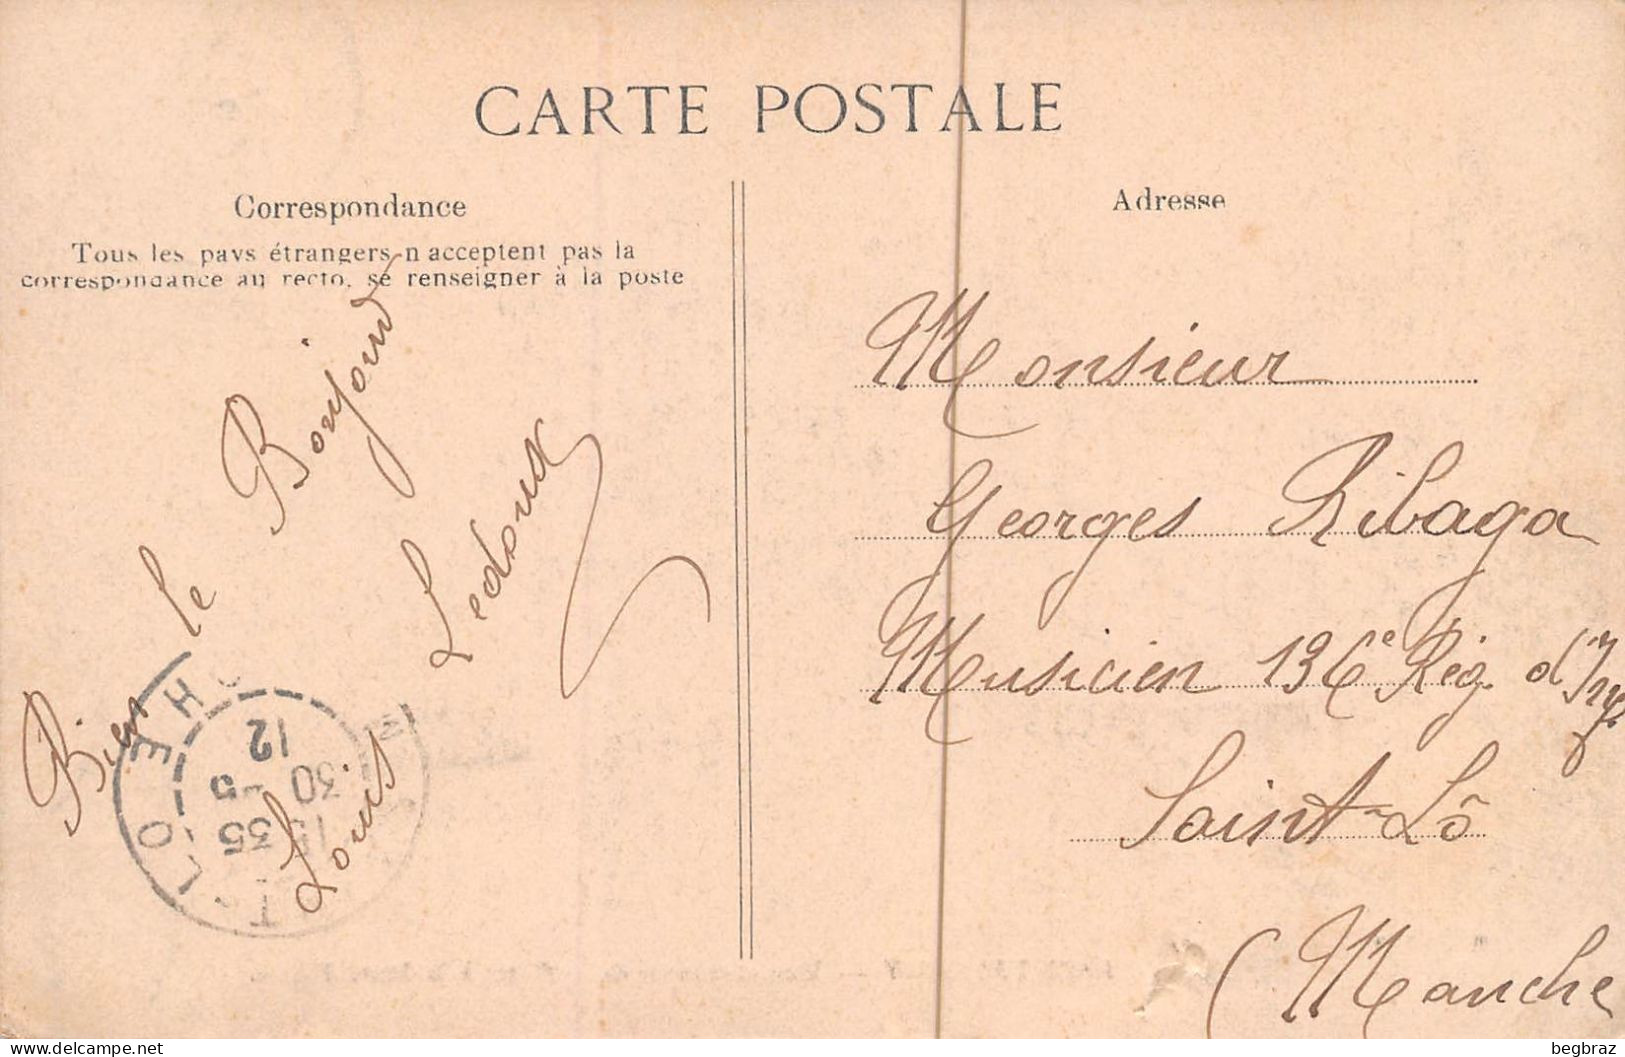 CARTE POSTALE
Correspondance
Tous les pays étrangers n'acceptent pas la
correspondance au recto, se renseigner à la poste
Bien le Bonjour
Louis Ledoux
12
30 -5
15 35
Adresse
Monsieur
Georges Ribaga
Musicien 136e Rég. d'Inf.
Saint-Lô
(Manche
begbraz